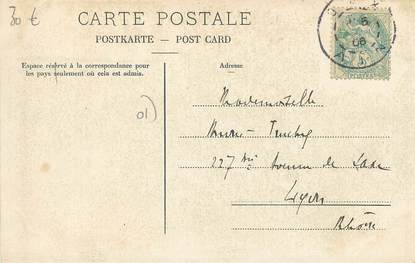 30 €
CARTE POSTALE
POSTKARTE — POST CARD
Espace réservé à la correspondance pour
les pays seulement où cela est admis.
Adresse
01)
Mademoiselle
227 bis Avenue de Saxe
Lyon
Rhône